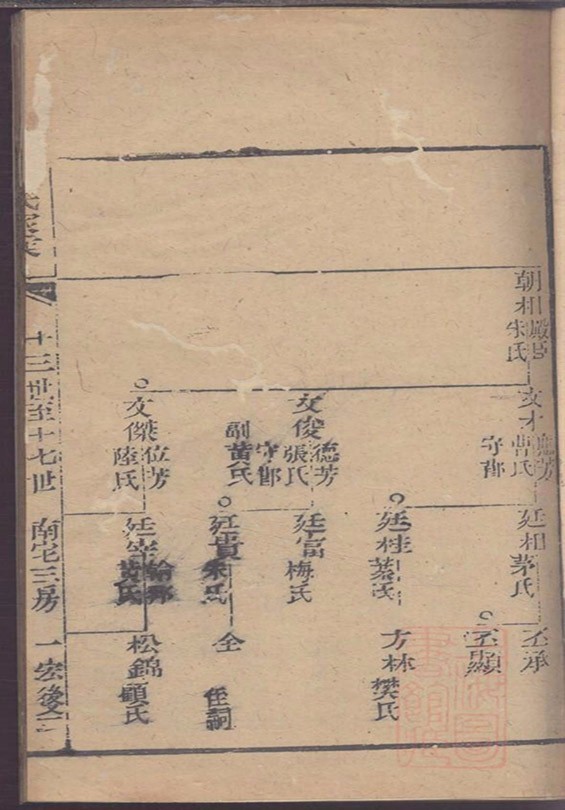 朝相 殿臣 宋氏
文才 魁芳 曹氏 守節
文俊 德芳 張氏 守節 副黃氏
文傑 位芳 陸氏
廷相 茅氏
廷桂 蔡氏
廷富 梅氏
廷貴 朱氏
廷宰 黃氏
丕承
丕顯
方林 樊氏
全 侄嗣
松錦 顧氏
十三世至十七世 南宅三房 一宏後